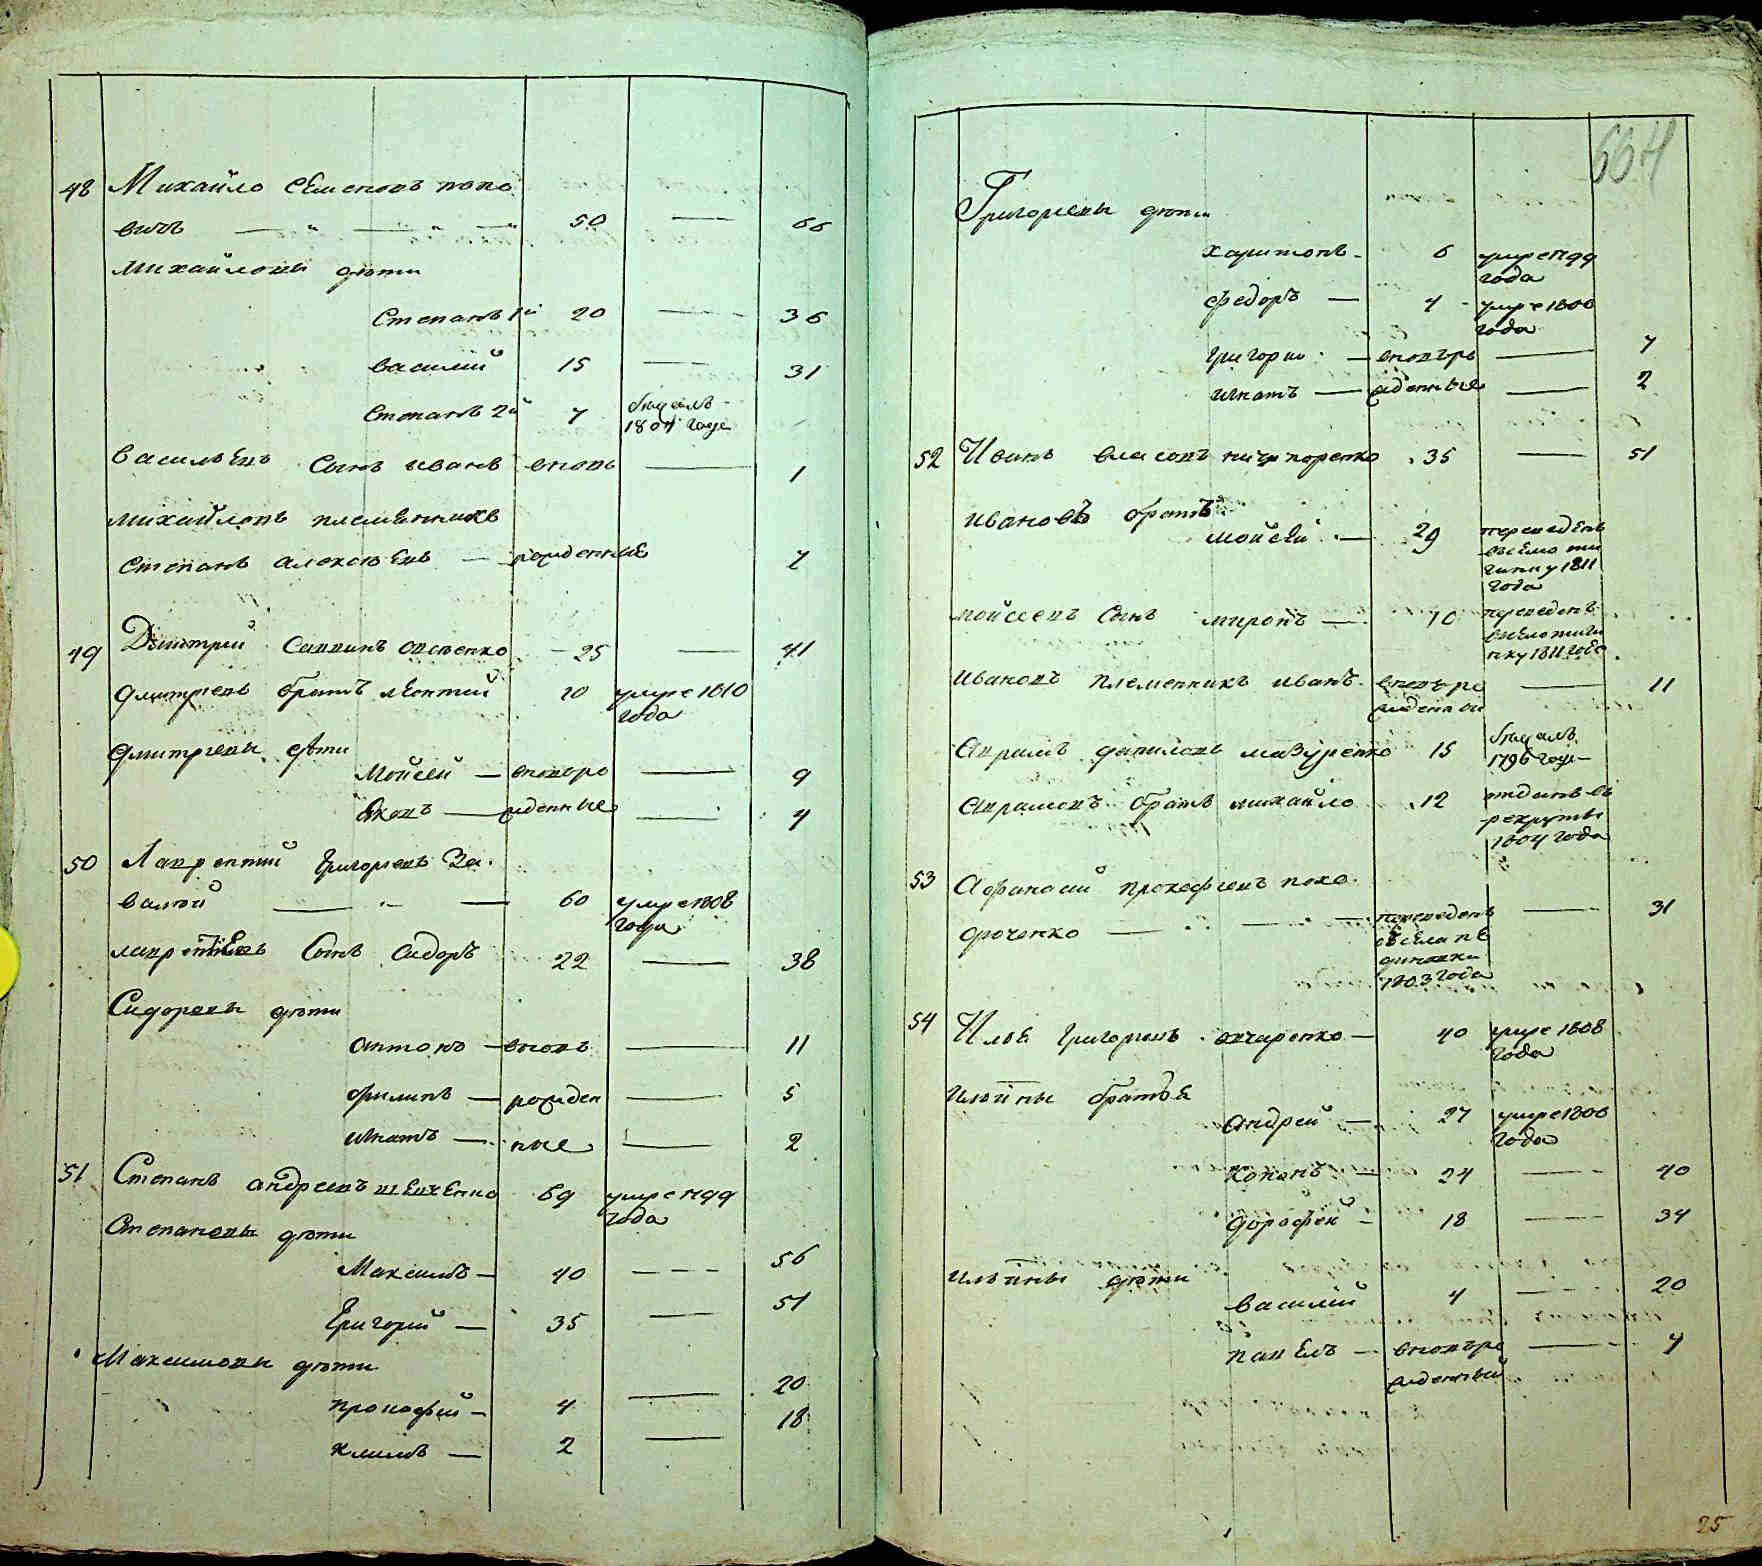 48 Михайло Семеновъ попо
вичь — " — " — " 50 — 66
Михайловы дѣти
Степанъ 1й 20 — 36
Василий 15 — 31
Степанъ 2й 7 бѣжалъ
1804 году
Васильевъ сынъ Иванъ вновь — 1
Михайловъ племянникъ
Степанъ Алексѣевъ — рожденные 7
49 Дмитрий Саввинъ — 25 — 41
Дмитриевъ братъ Леонтий 20 умре 1810
года
Дмитриевы дѣти
Мойсей — вновъро — 9
Яковъ — жденные — 4
50 Лаврентий Григорьевъ За
валий — " — 60 умре 1808
года
Лаврентиевъ сынъ Сидоръ 22 — 38
Сидоровы дѣти
Антонъ — вновь — 11
Филипъ — рожден — 5
Игнатъ — ные — 2
51 Степанъ Андреевъ Шевченко 69 умре 1799
года
Степановы дѣти
Максимъ — 40 — 56
Григорий — 35 — 51
Максимовы дѣти
Прокофий — 4 — 20
Климъ — 2 — 18
664
Григориевы дѣти
Харитонъ — 6 умре 1799
года
Федоръ — 4 умре 1800
года
Григорий — вновъро — 7
Игнатъ — жденные — 2
52 Иванъ Власовъ Ничипоренко 35 — 51
Ивановъ братъ
Мойсей — 29 переведенъ
1811
года
Мойсеевъ сынъ Миронъ — 10 переведенъ
1811 года
Ивановъ племенникъ Иванъ вновъро — 11
жденный
Аврамъ Даниловъ Мазуренко 15 бѣжалъ
1796 году
Аврамовъ братъ Михайло 12 отданъ въ
рекруты
1804 года
53 Афанасий Прокофиевъ похо
дюченко — " — переведенъ — 31
1803 года
54 Илья Григориевъ Овчаренко — 40 умре 1808
года
Ильины братья
Андрей — 27 умре 1800
года
Кононъ — 24 — 40
Дорофей — 18 — 34
Ильины дѣти
Василий 4 — 20
Павелъ — вновъро — 7
жденный
25